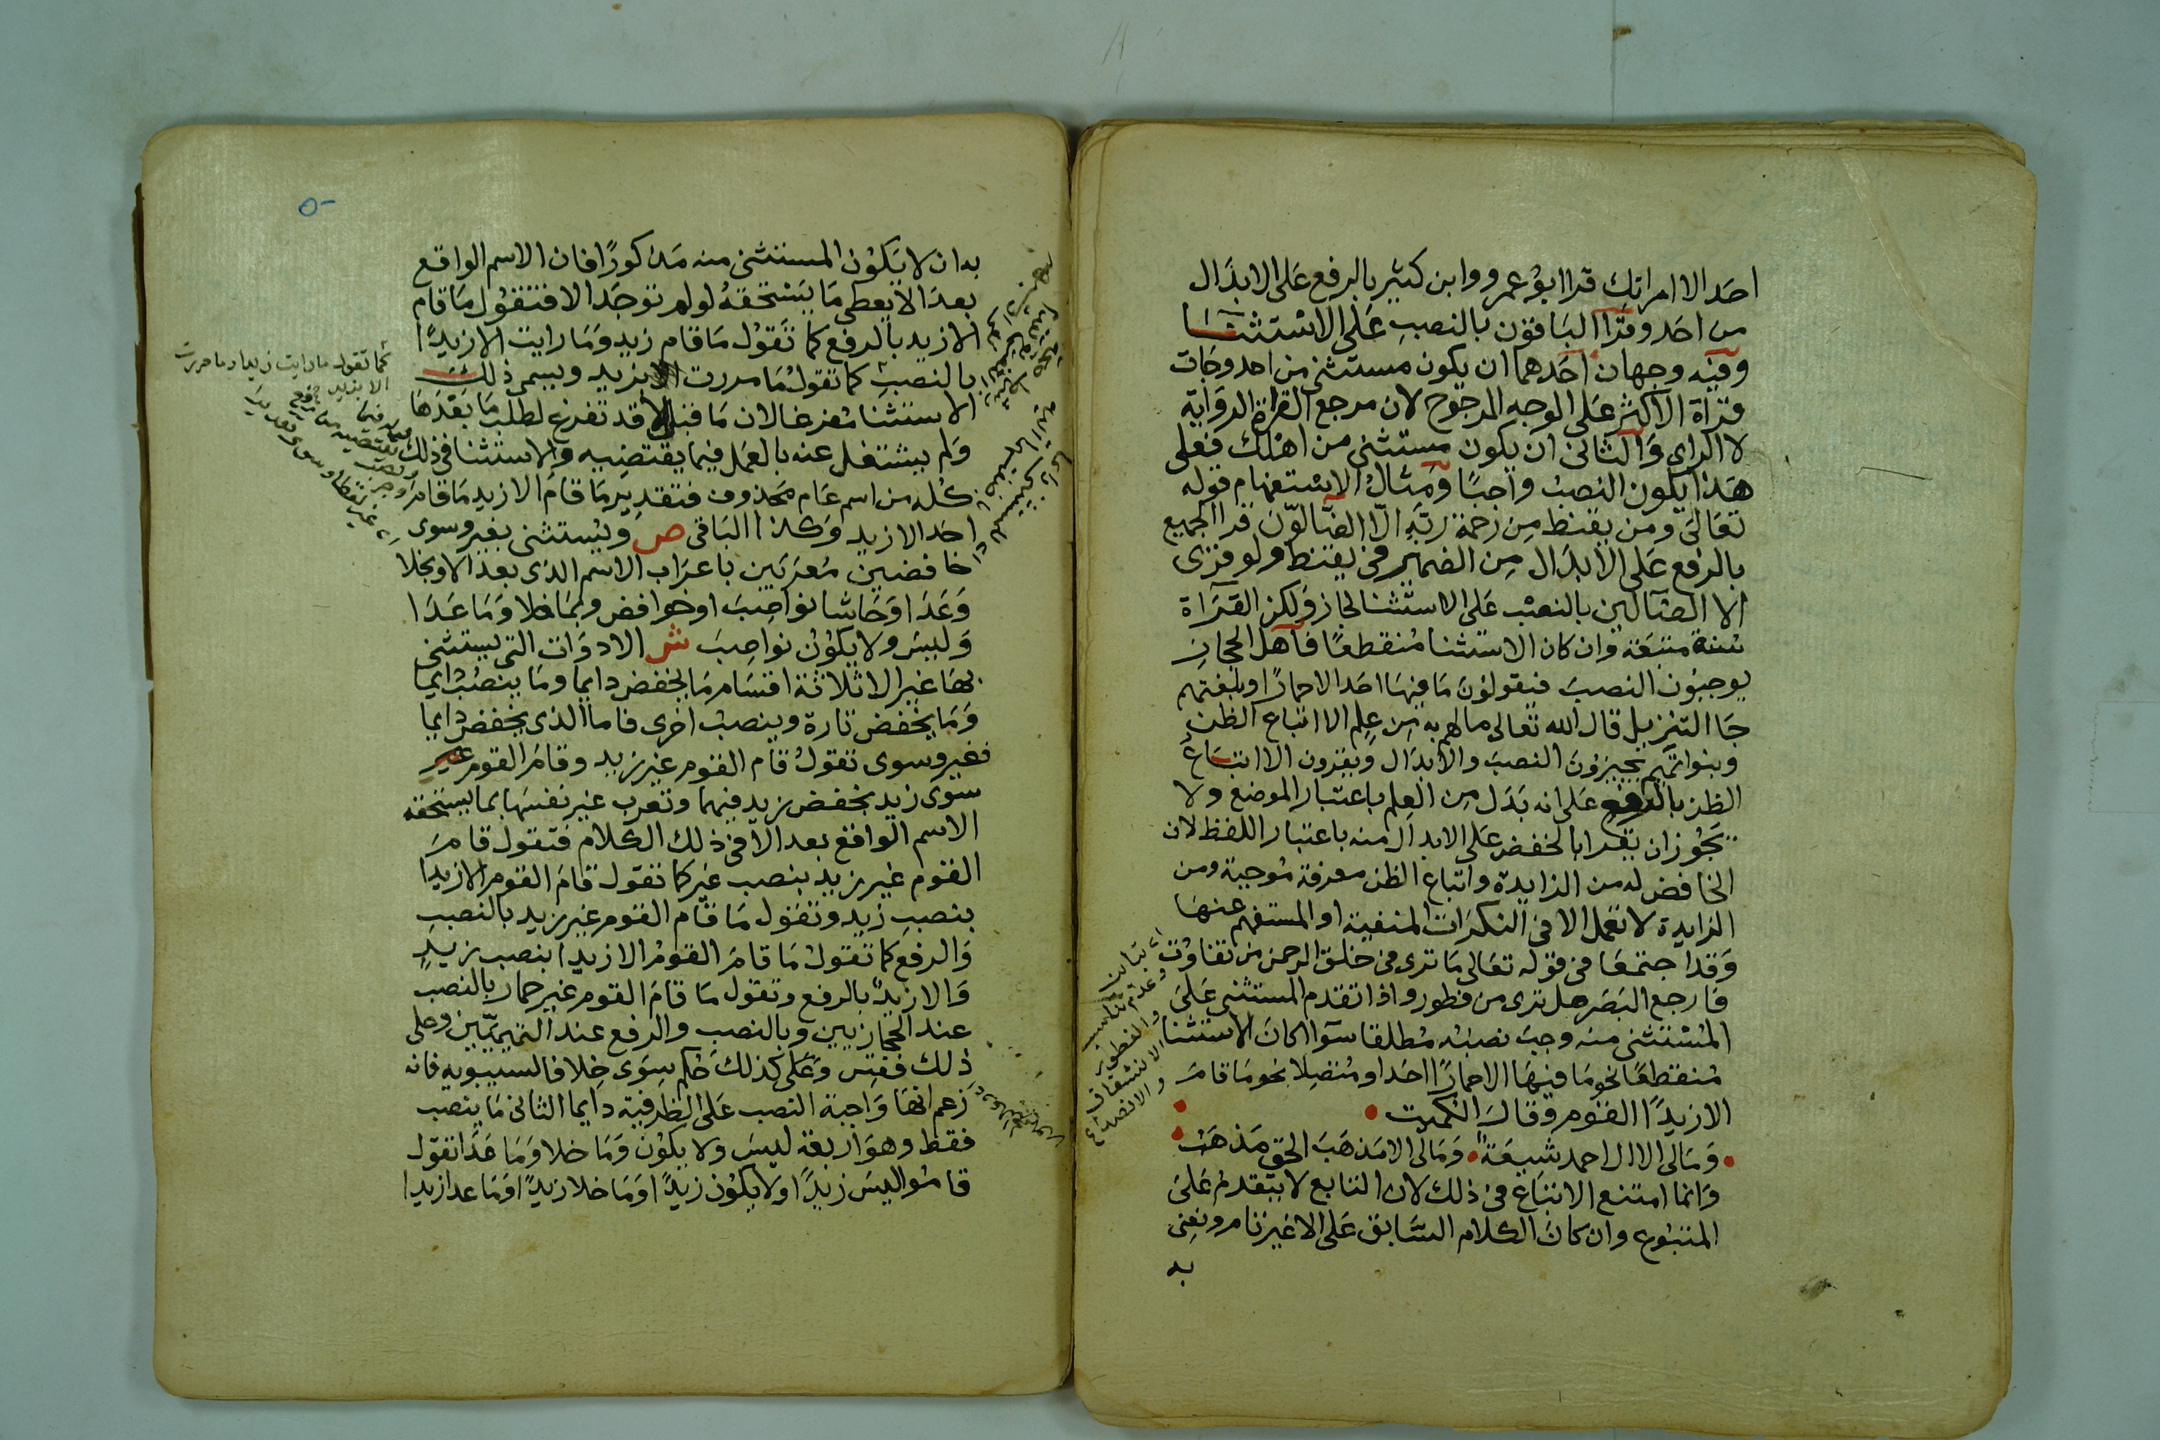 احد الا امراتك قرا ابو عمرو وابن كثير بالرفع على الابدال
من احد وقرأ الباقون بالنصب على الاستثنآء
وفيه وجهان احدهما ان يكون مستثنى من احد وجات
قرآة الاكثر على الوجه المرجوح لان مرجع القراة الرواية
لا الراى والثانى ان يكون مستثنى من اهلك فعلى
هذا يكون النصب واجبا ومثال الاستفهام قوله
تعالى ومن يقنط من رحمة ربه الا الضالون قرا الجميع
بالرفع على الابدال من الضمير فى يقنط ولو قرى
الا الضآلين بالنصب على الاستثنا لجاز ولكن القرآة
سنة متبعة وان كان الاستثنا منقطعا فاهل الحجاز
يوجبون النصب فيقولون ما فيها احد الا حمارا وبلغتهم
جا التنزيل قال الله تعالى ما لهم به من علم الا اتباع الظن
وبنوا تميم يجيزون النصب والابدال ويقرون الا اتباع
الظن بالرفع على انه بدل من العلم باعتبار الموضع ولا
يجوز ان يقرا بالخفض على الابدال منه باعتبار اللفظ لان
الخافض له من الزايدة واتباع الظن معرفة موجبة ومن
الزايدة لا تعمل الا فى النكرات المنفية او المستفهم عنها
وقد اجتمعا فى قوله تعالى ما ترى فى خلق الرحمن من تفاوت
فارجع البصر هل ترى من فطور واذا تقدم المستثنى على
المستثنى منه وجب نصبه مطلقا سوآ اكان الاستثنا
منقطعا نحو ما فيها الا حمارا احد او متصلا نحو ما قام
الا زيدا القوم وقال الكميت
وما لى الا ال احمد شيعة وما لى الا مذهب الحق مذهب
وانما امتنع الاتباع فى ذلك لان التابع لا يتقدم على
المتبوع وان كان الكلام السابق على الا غير تام ونعنى
به
اى تباين
وعدم تناسب
والفطور
الانشقاق
والانصداع
بدان لا يكون المستثنى منه مذكورا فان الاسم الواقع
بعد الا يعطى ما يستحقه لو لم توجد الا فتقول ما قام
الا زيد بالرفع كما تقول ما قام زيد وما رايت الا زيدا
بالنصب كما تقول ما مررت الا بزيد ويسمى ذلك
الاستثنا مفرغا لان ما قبل الا قد تفرغ لطلب ما بعدها
ولم يشتغل عنه بالعمل فيما يقتضيه والاستثنا فى ذلك
كله من اسم عام محذوف فتقدير ما قام الا زيد ما قام
احد الا زيد وكذا الباقى ص ويستثنى بغير وسوى
خافضين معربين باعراب الاسم الذى بعد الا وبخلا
وعدا وحاشا نواصب او خوافض وبما خلا وما عدا
وليس ولا يكون نواصب ش الادوات التى يستثنى
بها غير الا ثلاثة اقسام ما يخفض دايما وما ينصب دايما
وما يخفض تارة وينصب اخرى فاما الذى يخفض دايما
فغير وسوى تقول قام القوم غير زيد وقام القوم غير
سوى زيد بخفض زيد فيهما وتعرب غير نفسها بما يستحقه
الاسم الواقع بعد الا فى ذلك الكلام فتقول قام
القوم غير زيد بنصب غير كما تقول قام القوم الا زيدا
بنصب زيد وتقول ما قام القوم غير زيد بالنصب
والرفع كما تقول ما قام القوم الا زيدا بنصب زيد
والا زيد بالرفع وتقول ما قام القوم غير حمار بالنصب
عند الحجازيين وبالنصب والرفع عند التميميين وعلى
ذلك فقس وعلى كذلك حكم سوى خلافا لسيبويه فانه
زعم انها واجبة النصب على الظرفية دايما الثانى ما ينصب
فقط وهو اربعة ليس ولا يكون وما خلا وما عدا تقول
قاموا ليس زيدا او لا يكون زيدا او ما خلا زيدا او ما عدا زيدا
كما تقول ما رايت زيدا وما مررت
الا بزيد